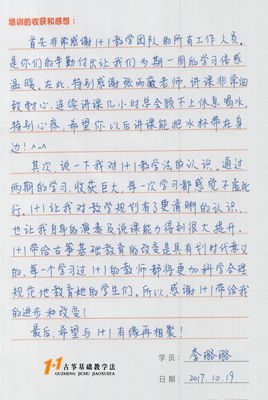 培训的收获和感想：
首先非常感谢1+1教学团队的所有工作人员，
是你们的辛勤付出让我们为期一周的学习倍感
温暖。在此，特别感谢张雨薇老师，讲课非常细
致耐心，连续讲课几小时总会顾不上休息喝水，
特别心疼，希望你以后讲课能把水杯带在身
边！^-^
其次，说一下我对1+1教学法的认识。通过
两期的学习，收获巨大，每一次学习都感觉不虚此
行。1+1让我对教学规划有了更清晰的认识，
也让我自身的演奏及说课能力得到很大提升。
1+1带给古筝基础教育的改变是具有划时代意义
的，每一个学习过1+1的教师都将更加科学合理
规范地教育她的学生们。所以，感谢1+1带给我
的进步和改变！
最后，希望与1+1有缘再相聚！
1+1古筝基础教学法
GUZHENG JICHU JIAOXUEFA
学员：李璐璐
日期：2017.10.19